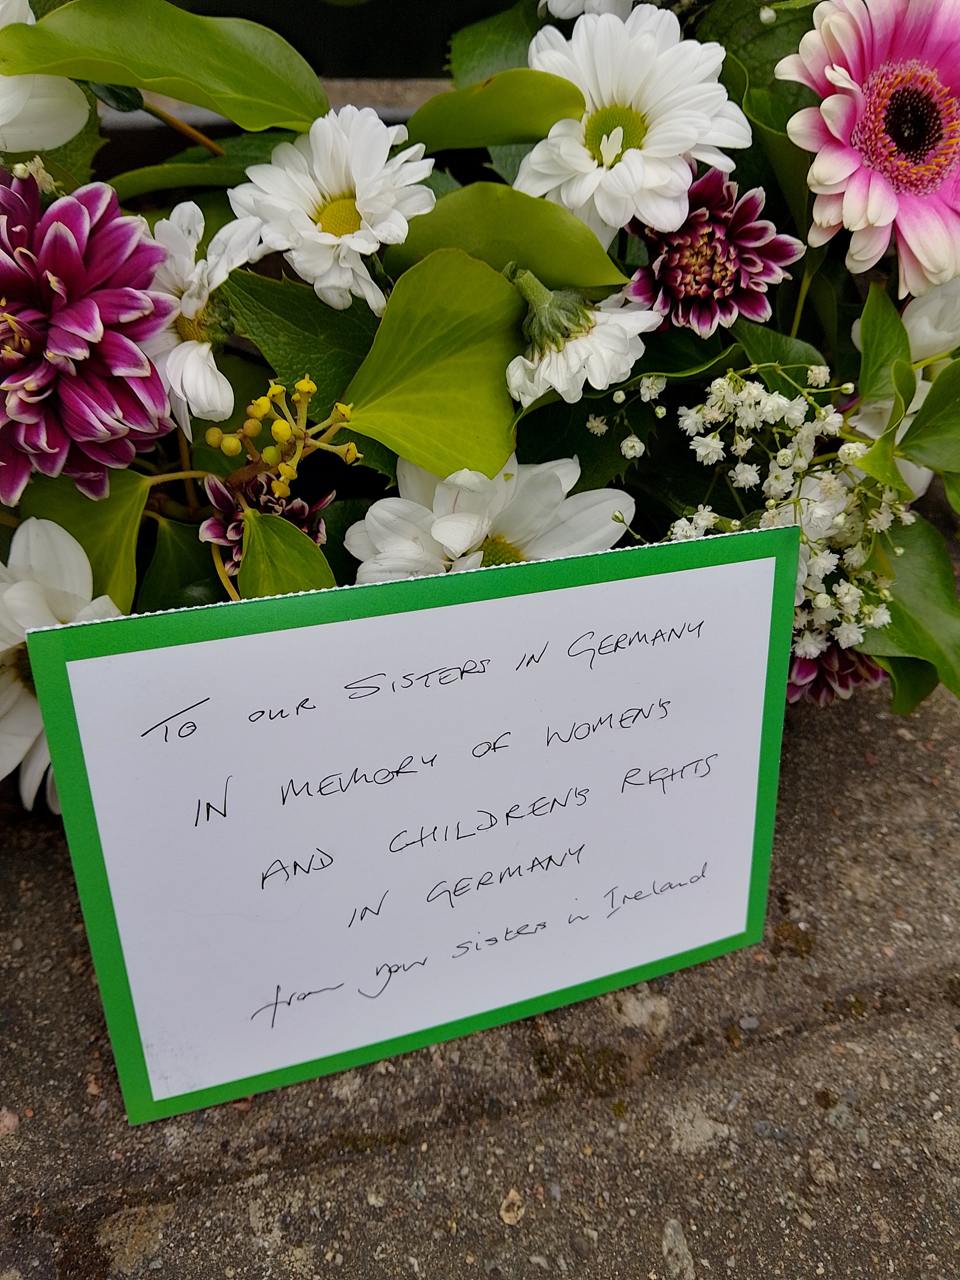 TO OUR SISTERS IN GERMANY
IN MEMORY OF WOMEN'S
AND CHILDREN'S RIGHTS
IN GERMANY
from your sisters in Ireland